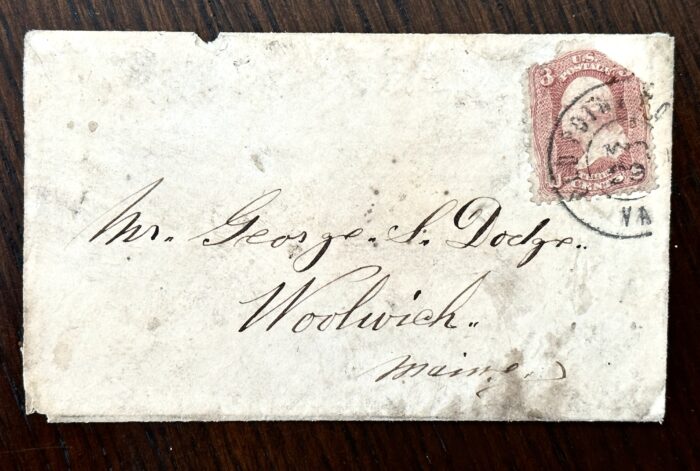 3
U.S.
POSTAGE
POINT
VA
Mr. George. S. Dodge.
Woolwich.
Maine.